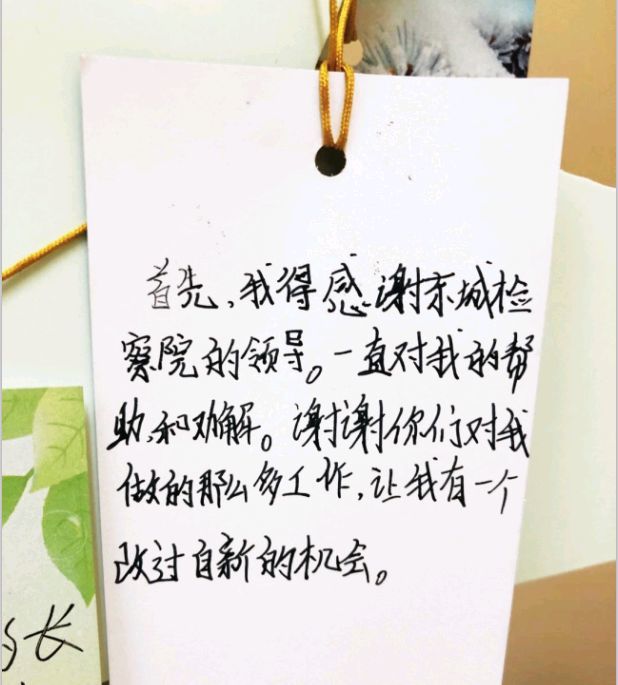 首先，我得感谢东城检
察院的领导。一直对我的帮
助，和劝解。谢谢你们对我
做的那么多工作，让我有一个
改过自新的机会。
长